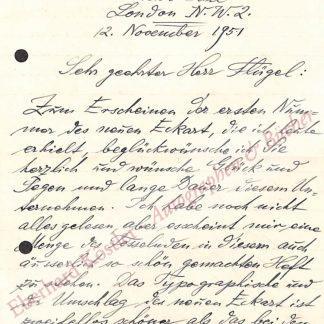 London N.W.2.
12. November 1951
Sehr geehrter Herr Flügel:
Zum Erscheinen der ersten Num-
mer des neuen Eckart, die ich heute
erhielt, beglückwünsche ich Sie
herzlich und wünsche Glück und
Segen und lange Dauer diesem Un-
ternehmen. Ich habe noch nicht
alles gelesen aber es scheint mir eine
Menge des in diesem auch
äusserlich so schön gemachten Heft
zu stehen. Das Typographische und
Umschlag des neuen Eckart ist
zweifellos schöner als das bei den
Eberhard Köstler Autographen & Bücher